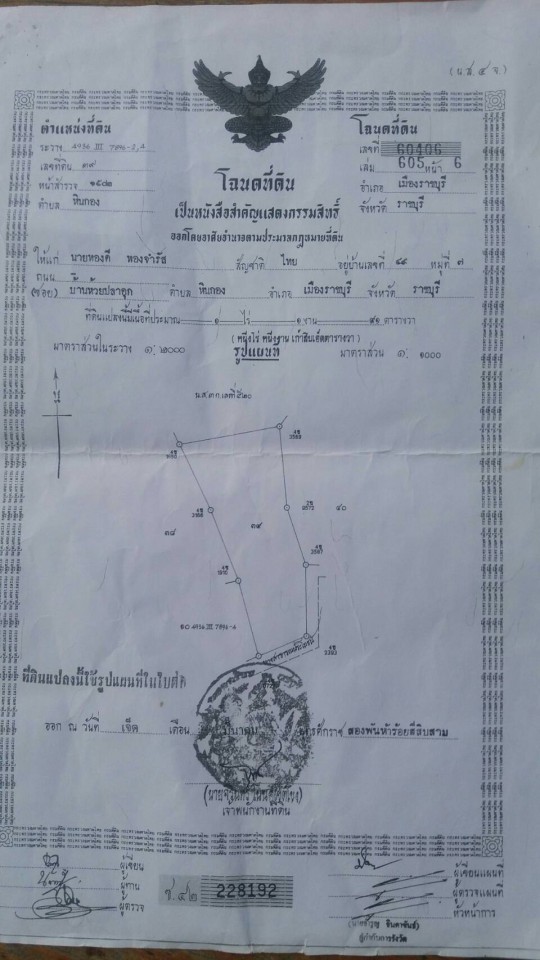 (น.ส.๔ จ.)
ตำแหน่งที่ดิน
ระวาง 4936 III 7896-2,4
เลขที่ดิน ๓๙
หน้าสำรวจ ๑๕๔๒
ตำบล หินกอง
โฉนดที่ดิน
เลขที่ 60406
เล่ม 605 หน้า 6
อำเภอ เมืองราชบุรี
จังหวัด ราชบุรี
โฉนดที่ดิน
เป็นหนังสือสำคัญแสดงกรรมสิทธิ์
ออกโดยอาศัยอำนาจตามประมวลกฎหมายที่ดิน
ให้แก่ นายทองดี ทองจำรัส สัญชาติ ไทย อยู่บ้านเลขที่ ๔๕ หมู่ที่ ๗
ถนน
(ซอย) บ้านห้วยปลาดุก ตำบล หินกอง อำเภอ เมืองราชบุรี จังหวัด ราชบุรี
ที่ดินแปลงนี้มีเนื้อที่ประมาณ ๑ ไร่ ๑ งาน ๙๑ ตารางวา
(หนึ่งไร่ หนึ่งงาน เก้าสิบเอ็ดตารางวา)
มาตราส่วนในระวาง ๑:๒๐๐๐ รูปแผนที่ มาตราส่วน ๑:๑๐๐๐
น
น.ส.๓ ก. เลขที่ ๕๒๐
๓๘
๓๙
๔๐
4936 III 7896-4
ที่ดินแปลงนี้ใช้รูปแผนที่ในใบต่อ
ออก ณ วันที่ เจ็ด เดือน มีนาคม พุทธศักราช สองพันห้าร้อยสี่สิบสาม
เจ้าพนักงานที่ดิน
ผู้เขียน
ผู้ทาน
ผู้ตรวจ
ช.๔๒ 228192
ผู้เขียนแผนที่
ผู้ตรวจแผนที่
หัวหน้าการ
ผู้กำกับการรังวัด